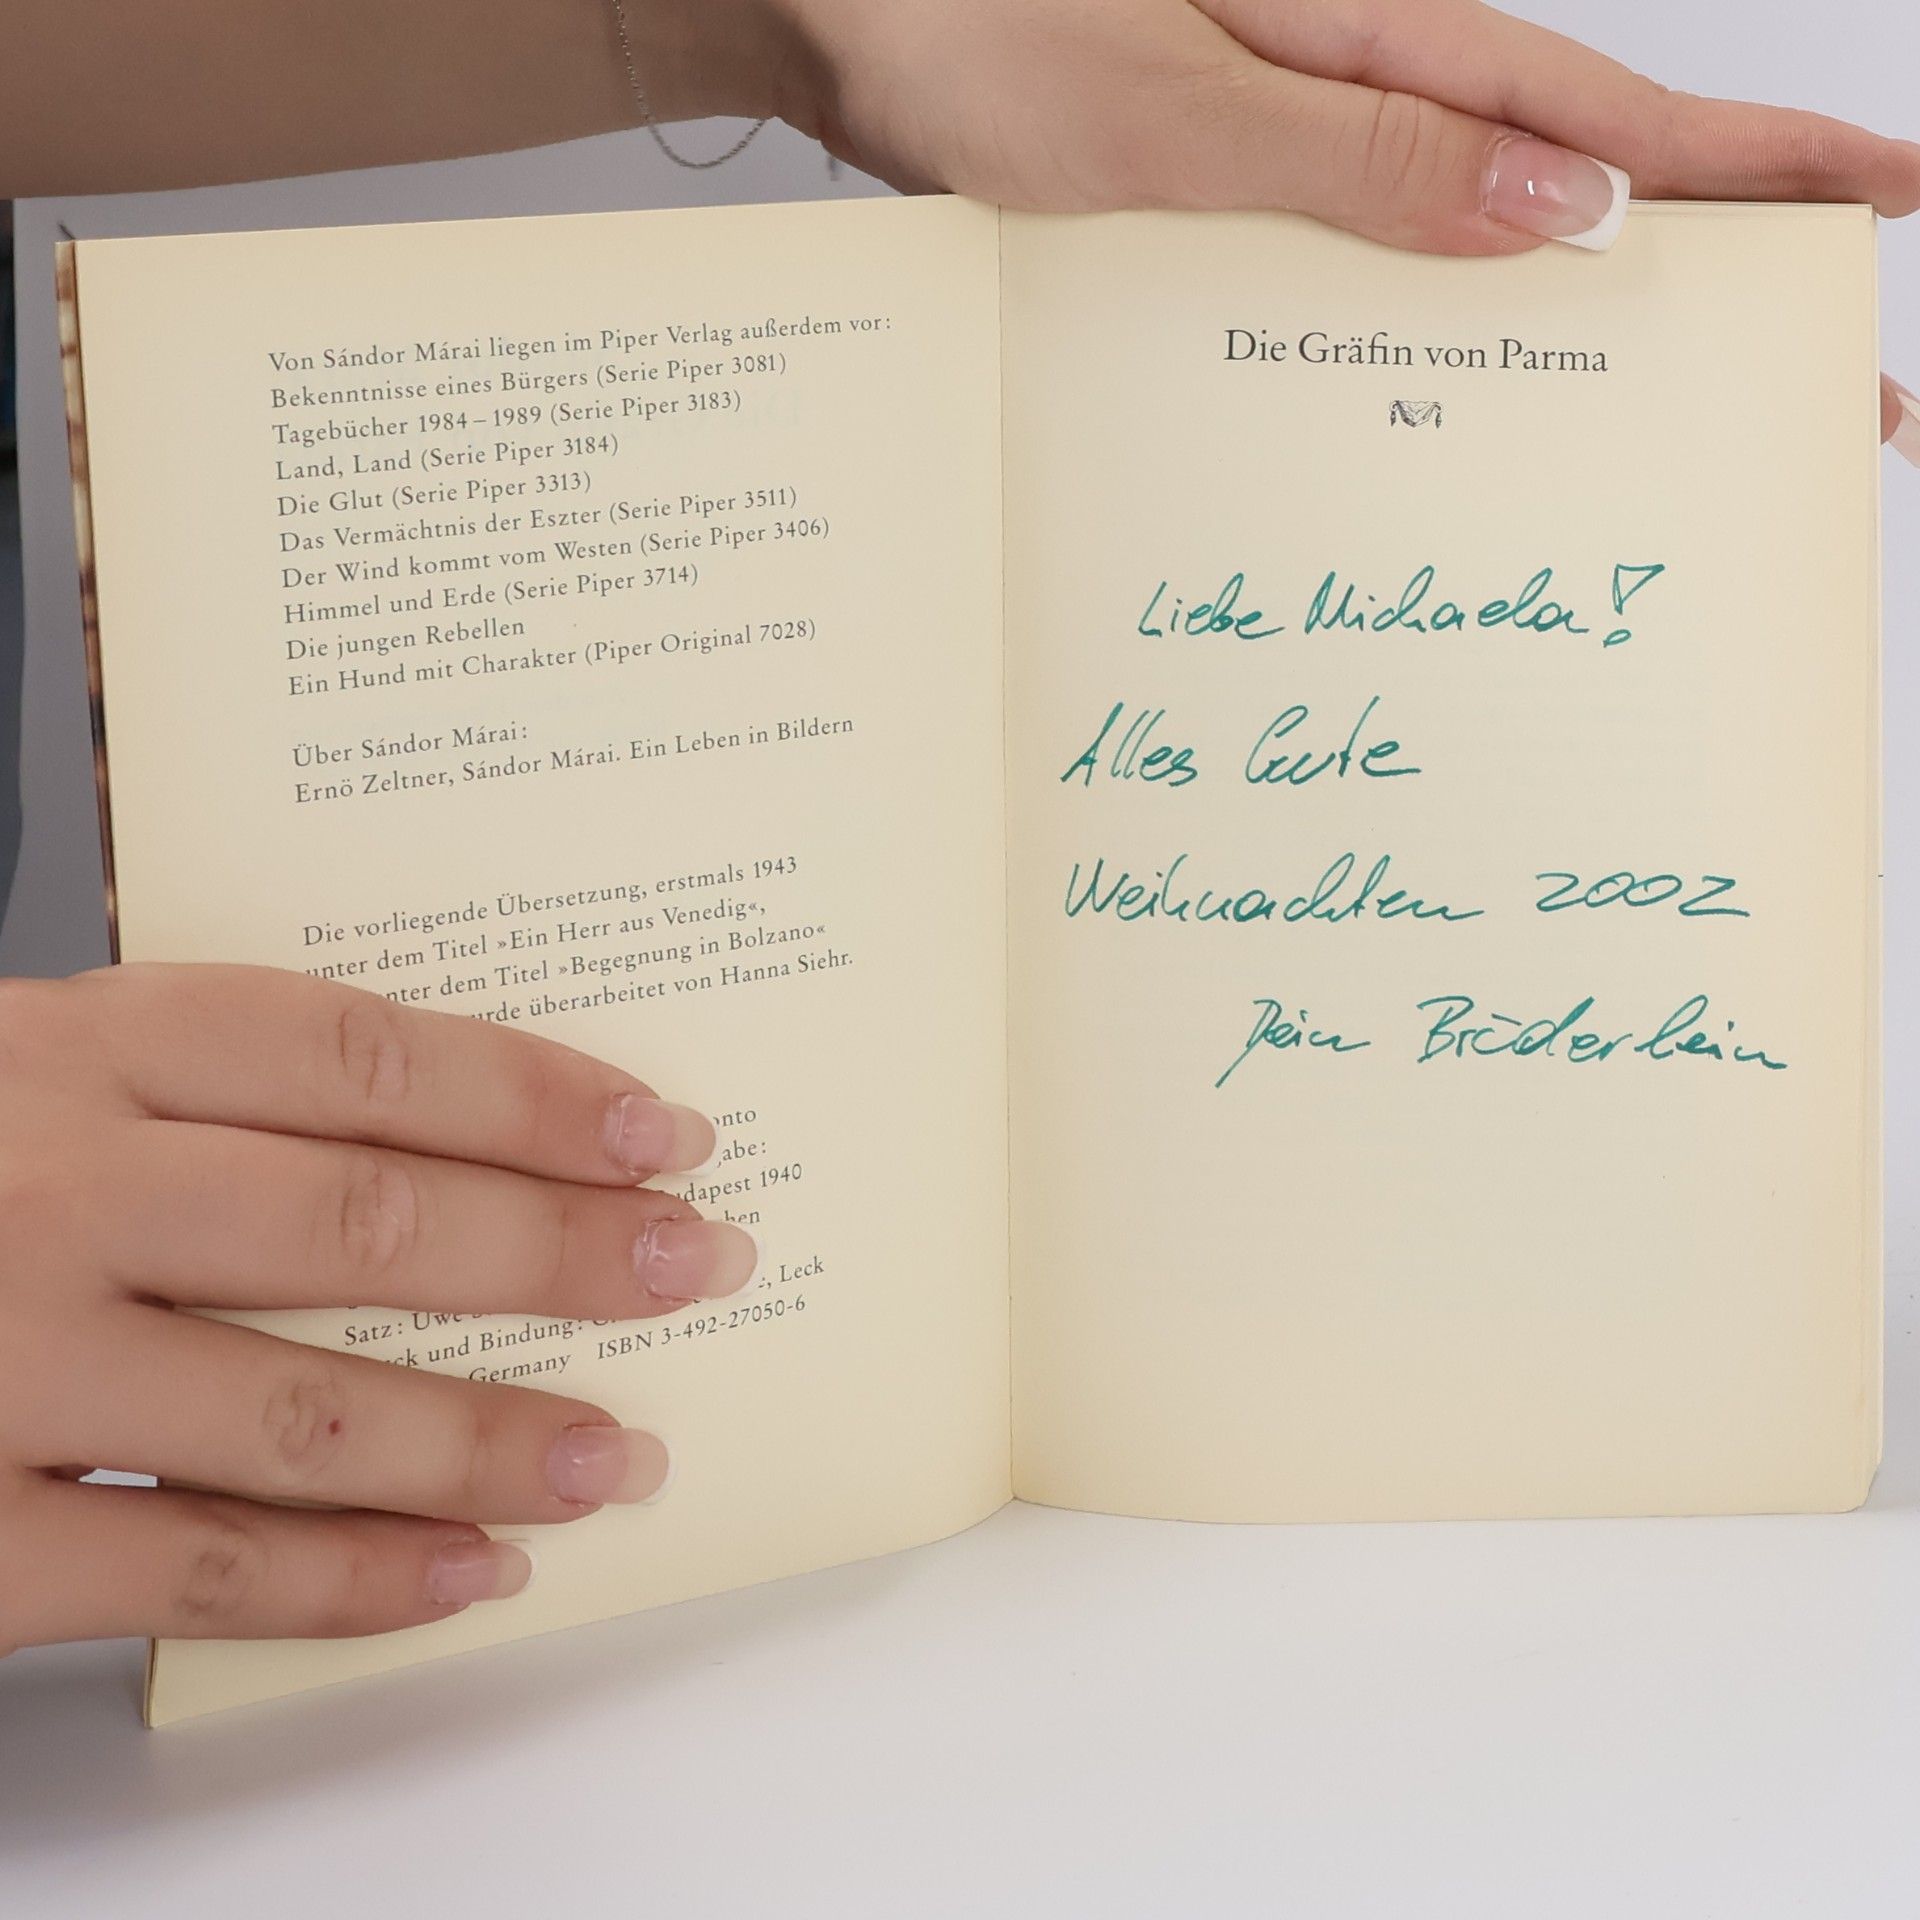 Von Sándor Márai liegen im Piper Verlag außerdem vor:
Bekenntnisse eines Bürgers (Serie Piper 3081)
Tagebücher 1984–1989 (Serie Piper 3183)
Land, Land (Serie Piper 3184)
Die Glut (Serie Piper 3313)
Das Vermächtnis der Eszter (Serie Piper 3511)
Der Wind kommt vom Westen (Serie Piper 3406)
Himmel und Erde (Serie Piper 3714)
Die jungen Rebellen
Ein Hund mit Charakter (Piper Original 7028)
Über Sándor Márai:
Ernö Zeltner, Sándor Márai. Ein Leben in Bildern
Die vorliegende Übersetzung, erstmals 1943
unter dem Titel »Ein Herr aus Venedig«,
dem Titel »Begegnung in Bolzano«
überarbeitet von Hanna Siehr.
1940
Leck
Satz:
und Bindung:
Germany ISBN 3-492-27050-6
Die Gräfin von Parma
Liebe Michaela!
Alles Gute
Weihnachten 2002
Dein Brüderlein